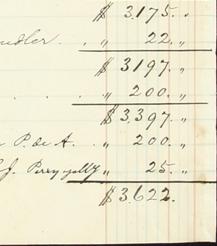 $ 3,175. "
ndler. . " 22. "
$ 3197. "
. . . " 200. "
$ 3,397. "
P. de A. " 200. "
J. Perry " 25. "
$ 3,622.